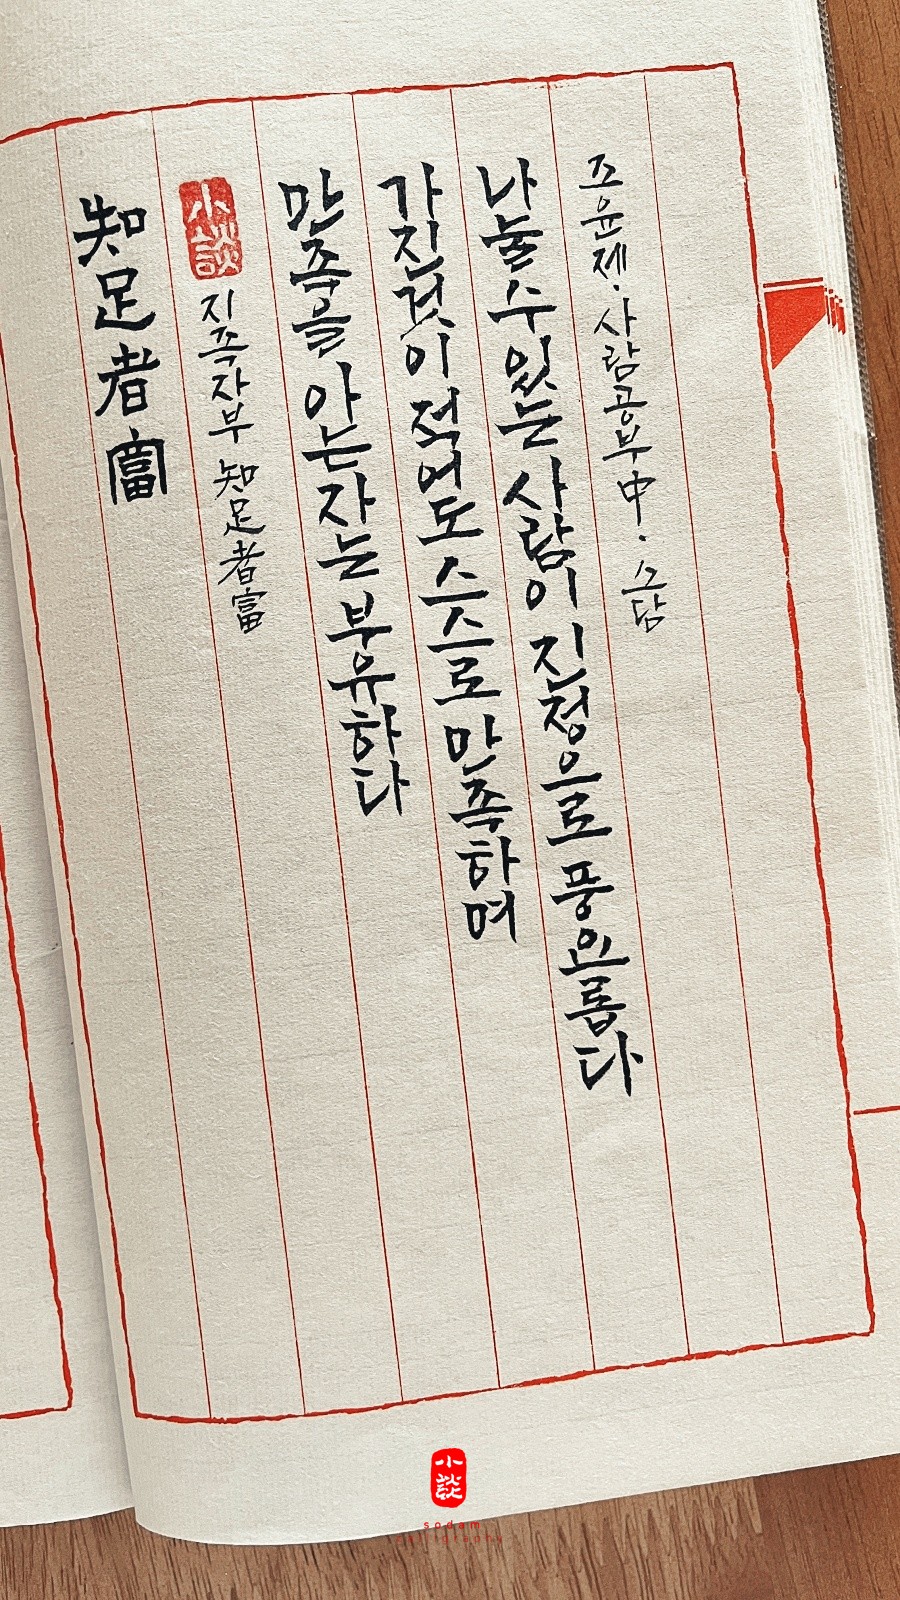 知足者富
小談
지족자부 知足者富
만족을 아는 자는 부유하다
가진 것이 적어도 스스로 만족하며
나눌 수 있는 사람이 진정으로 풍요롭다
조윤제·사람공부 中·소담
小談
sodam
calligraphy